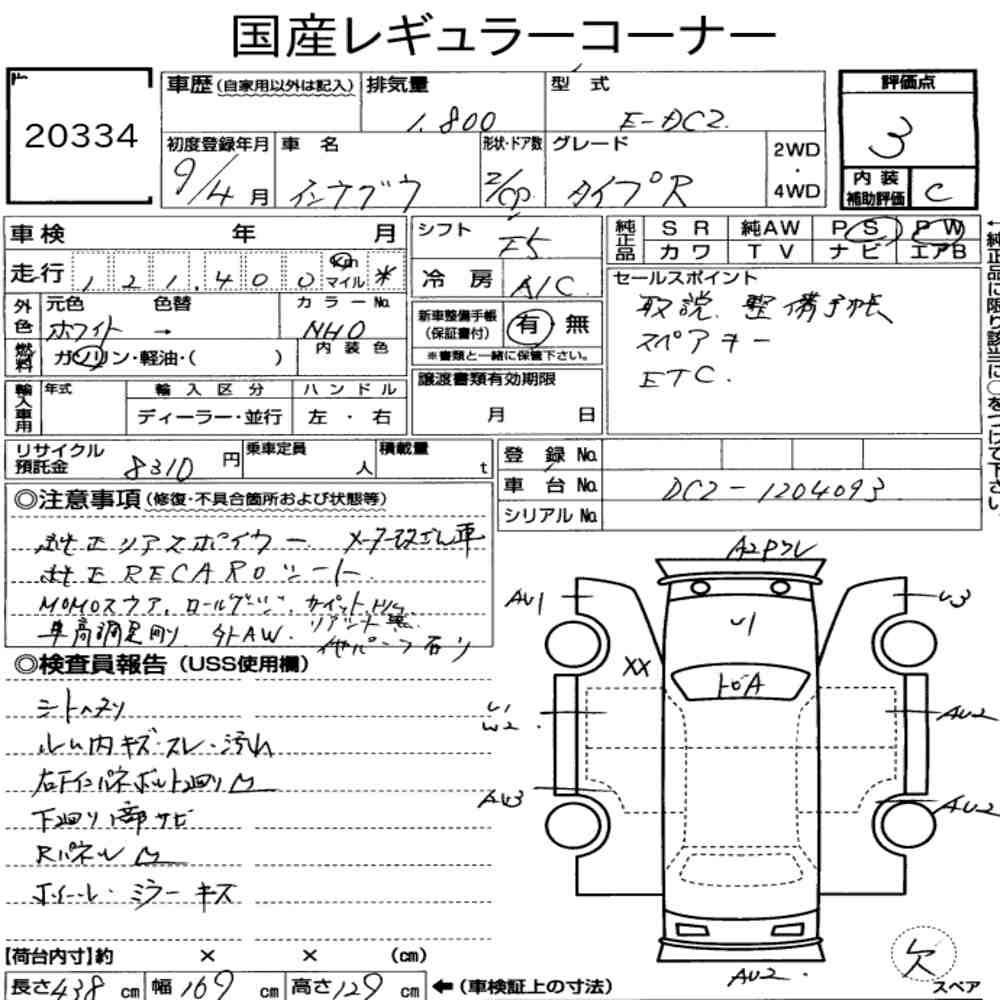 国産レギュラーコーナー
20334
車歴 (自家用以外は記入) 排気量 型式 評価点
1,800 E-DC2 3
初度登録年月 車名 形状・ドア数 グレード 2WD・4WD
9/4月 インテグラ 2/CP タイプR
内装補助評価 C
車検 年 月 シフト F5
純正品 SR 純AW PS PW
カワ TV ナビ エアB
走行 121,400 Km マイル *
冷房 A/C
セールスポイント
取説. 整備手帳
スペアキー
ETC.
外色 元色 色替 カラーNo.
ホワイト → NH0
新車整備手帳(保証書付) 有・無
※書類と一緒に保管下さい。
燃料 ガソリン・軽油・( ) 内装色
譲渡書類有効期限
月 日
輸入車用 年式 輸入区分 ハンドル
ディーラー・並行 左・右
←純正品に限り該当に○をつけて下さい。
リサイクル預託金 8310円 乗車定員 人 積載量 t
登録No.
車台No. DC2-1204093
シリアルNo.
◎注意事項(修復・不具合箇所および状態等)
純正リアスポイラー メーター改ざん車
純正RECAROシート
MOMOステア. ロールゲージ.
車高調 外AW.
◎検査員報告 (USS使用欄)
シートヘタリ
ルーム内キズ・スレ・汚れ
下廻り部サビ
Rパネル
ミラーキズ
A2Pワレ
AU1
U3
U1
XX
トビA
U1
W2
AU2
AU3
AU2
AU2
欠
スペア
【荷台内寸】約 × × (cm)
長さ438cm 幅169cm 高さ129cm ←(車検証上の寸法)